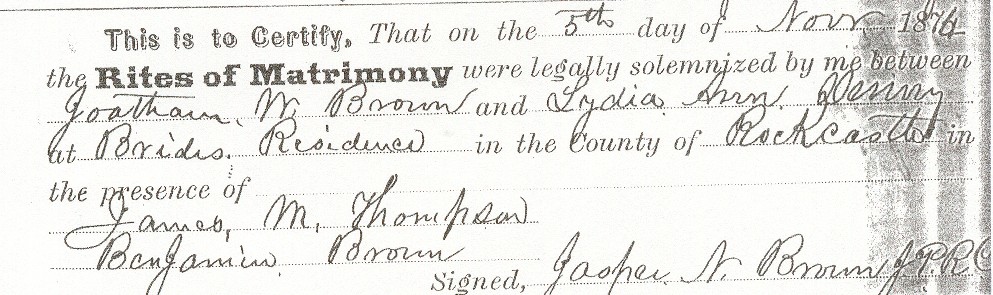 This is to Certify, That on the 5th day of Novr 1876
the Rites of Matrimony were legally solemnized by me between
Joatham, W. Brown and Lydia Ann. Denny
at Brides. Residence in the County of Rockcastle in
the presence of
James, M, Thompson
Benjamin. Brown
Signed, Jasper. N. Brown J.P.R.C